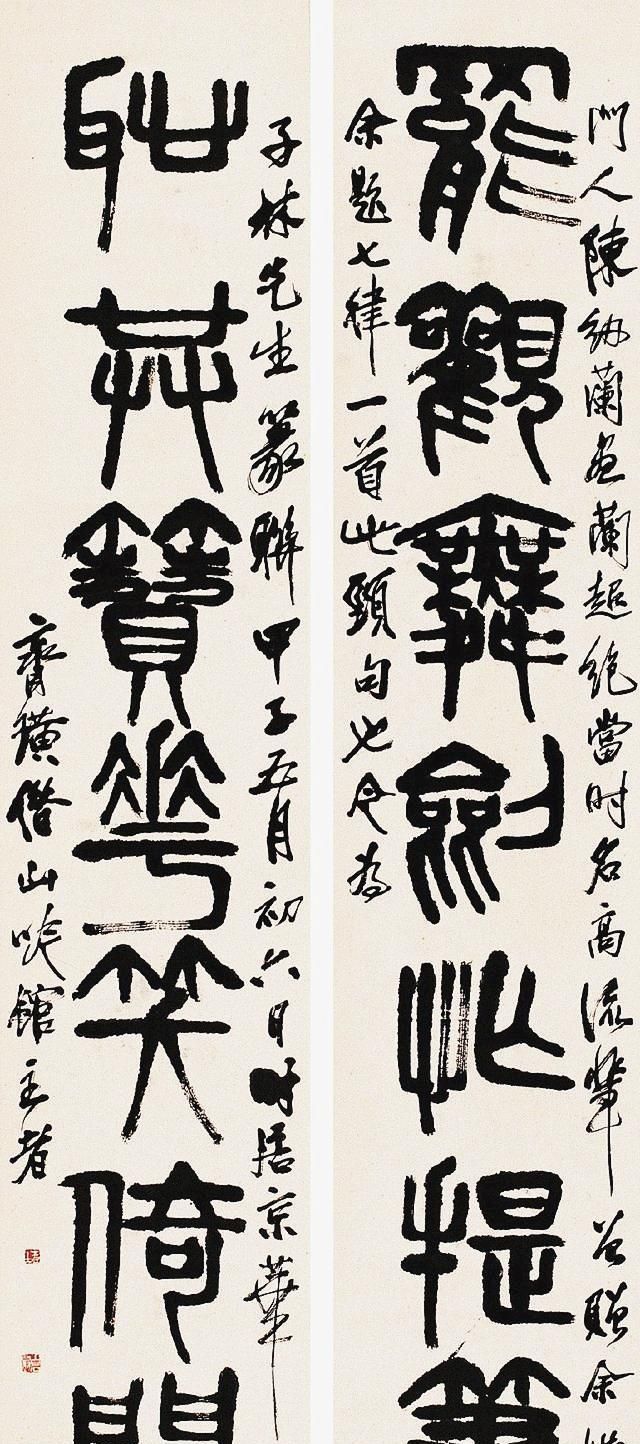 門人陳紉蘭畫蘭超絕當時名高流輩贈余
罷觀舞劍忙提筆
余題七律一首此頸句也今為
子林先生篆聯甲子五月初六日時居京華
耻共簪花笑倚門
齊璜借山吟館主者